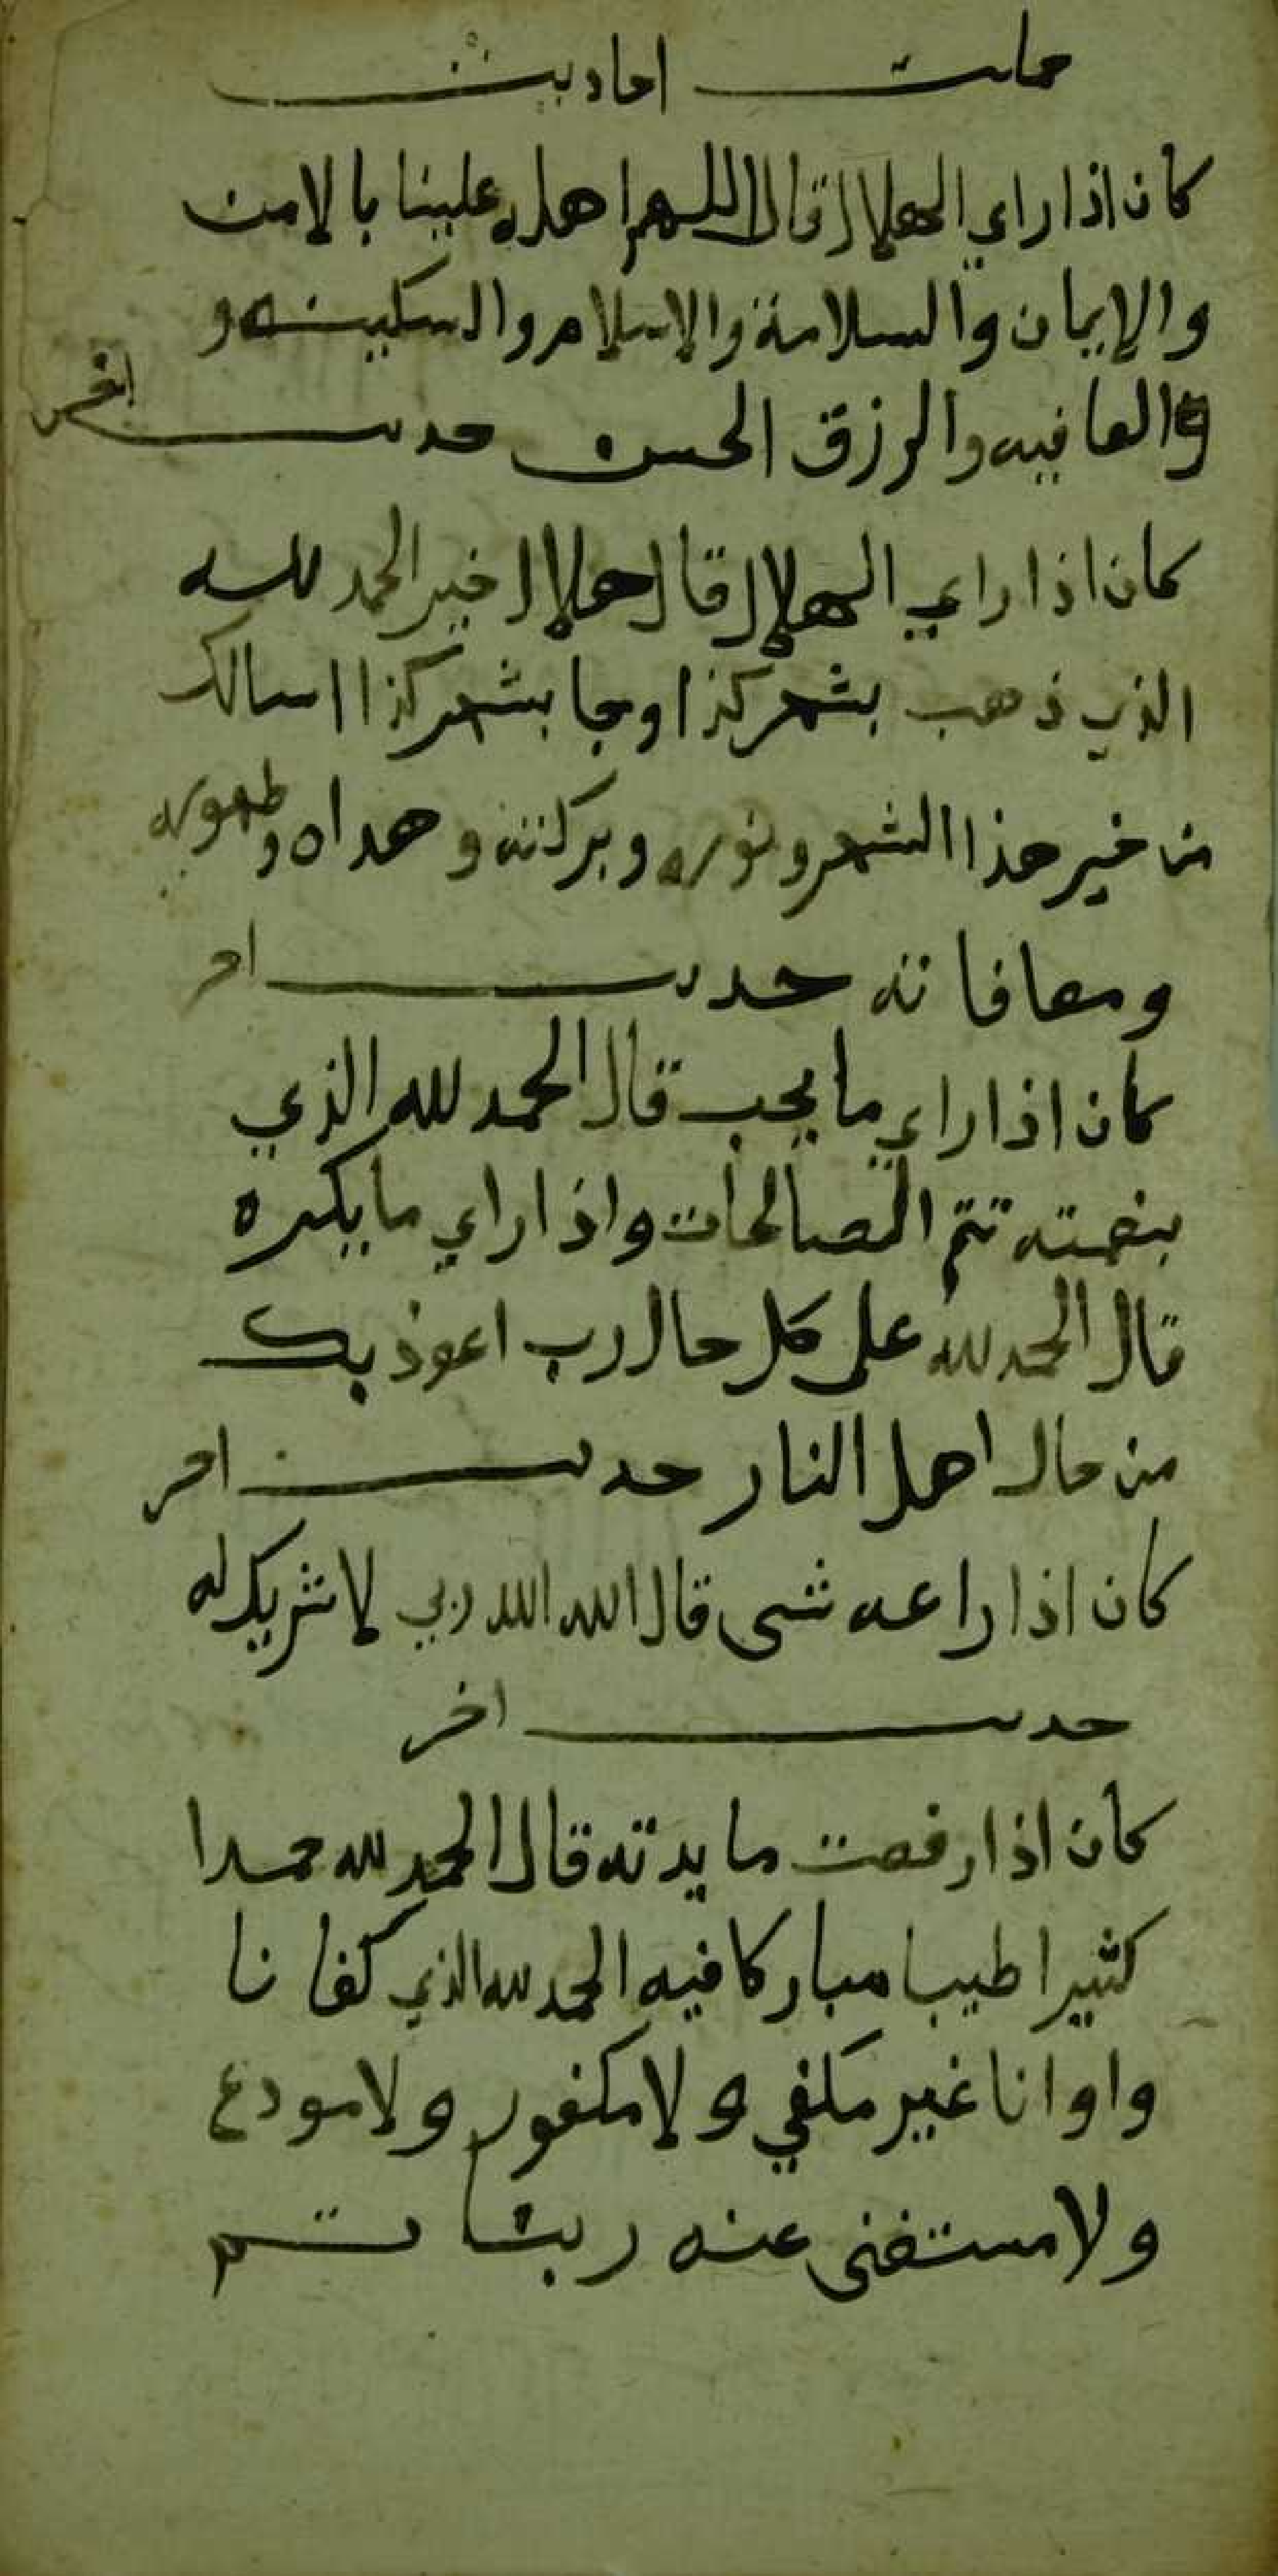 احاديث
كان اذا راي الهلال قال اللهم اهله علينا بالامن
والإيمان والسلامة والاسلام والسكينه و
والعافيه والرزق الحسن حديث اخر
كان اذا راي الهلال قال هلال خير الحمد لله
الذي ذهب بشهر كذا وجا بشهر كذا اسالك
من خير هذا الشهر ونوره وبركته وهداه وطهوره
ومعافاته حديث اخر
كان اذا راي ما يحب قال الحمد لله الذي
بنعمته تتم الصالحات واذا راي ما يكره
قال الحمد لله على كل حال رب اعوذ بك
من حال اهل النار حديث اخر
كان اذا راعه شى قال الله الله ربي لا شريك له
حديث اخر
كان اذا رفعت مايدته قال الحمد لله حمدا
كثيرا طيبا مباركا فيه الحمد لله الذي كفانا
واوانا غير مكفي ولا مكفور ولا مودع
ولا مستغنى عنه ربنا تم